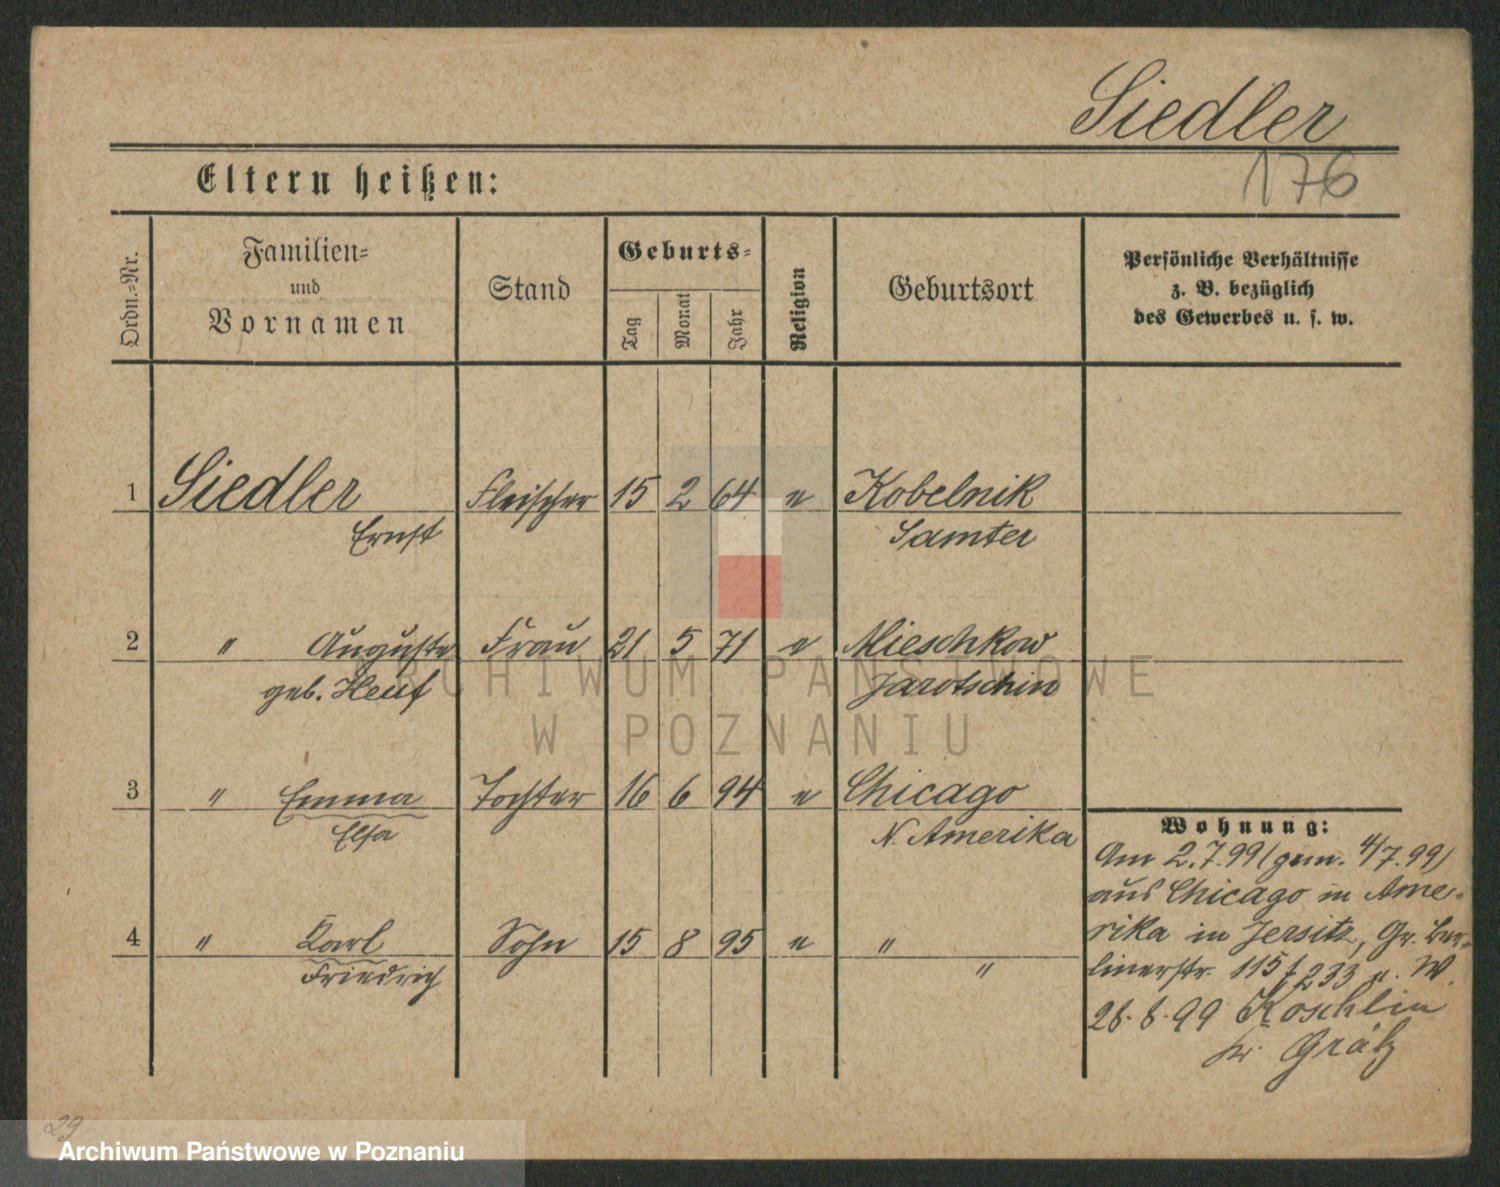 Siedler
176
Eltern heißen:
Ordn.-Nr.
Familien-
und
Vornamen
Stand
Geburts-
Tag
Monat
Jahr
Religion
Geburtsort
Persönliche Verhältnisse
z. B. bezüglich
des Gewerbes u. s. w.
1 Siedler Fleischer 15 2 64 e Kobelnik
Ernst Samter
2 " Auguste Frau 21 5 71 e Mieschkow
geb. Jarotschin
3 " Emma Tochter 16 6 94 e Chicago
Elsa N. Amerika
4 " Karl Sohn 15 8 95 e "
Friedrich "
Wohnung:
Am 2.7.99 (gem. 4/7.99)
aus Chicago in Ame-
rika in Jersitz, Gr. Ber-
linerstr. 115 233 W.
28.8.99 Koschlin
Kr. Grätz
29
ARCHIWUM PAŃSTWOWE
W POZNANIU
Archiwum Państwowe w Poznaniu